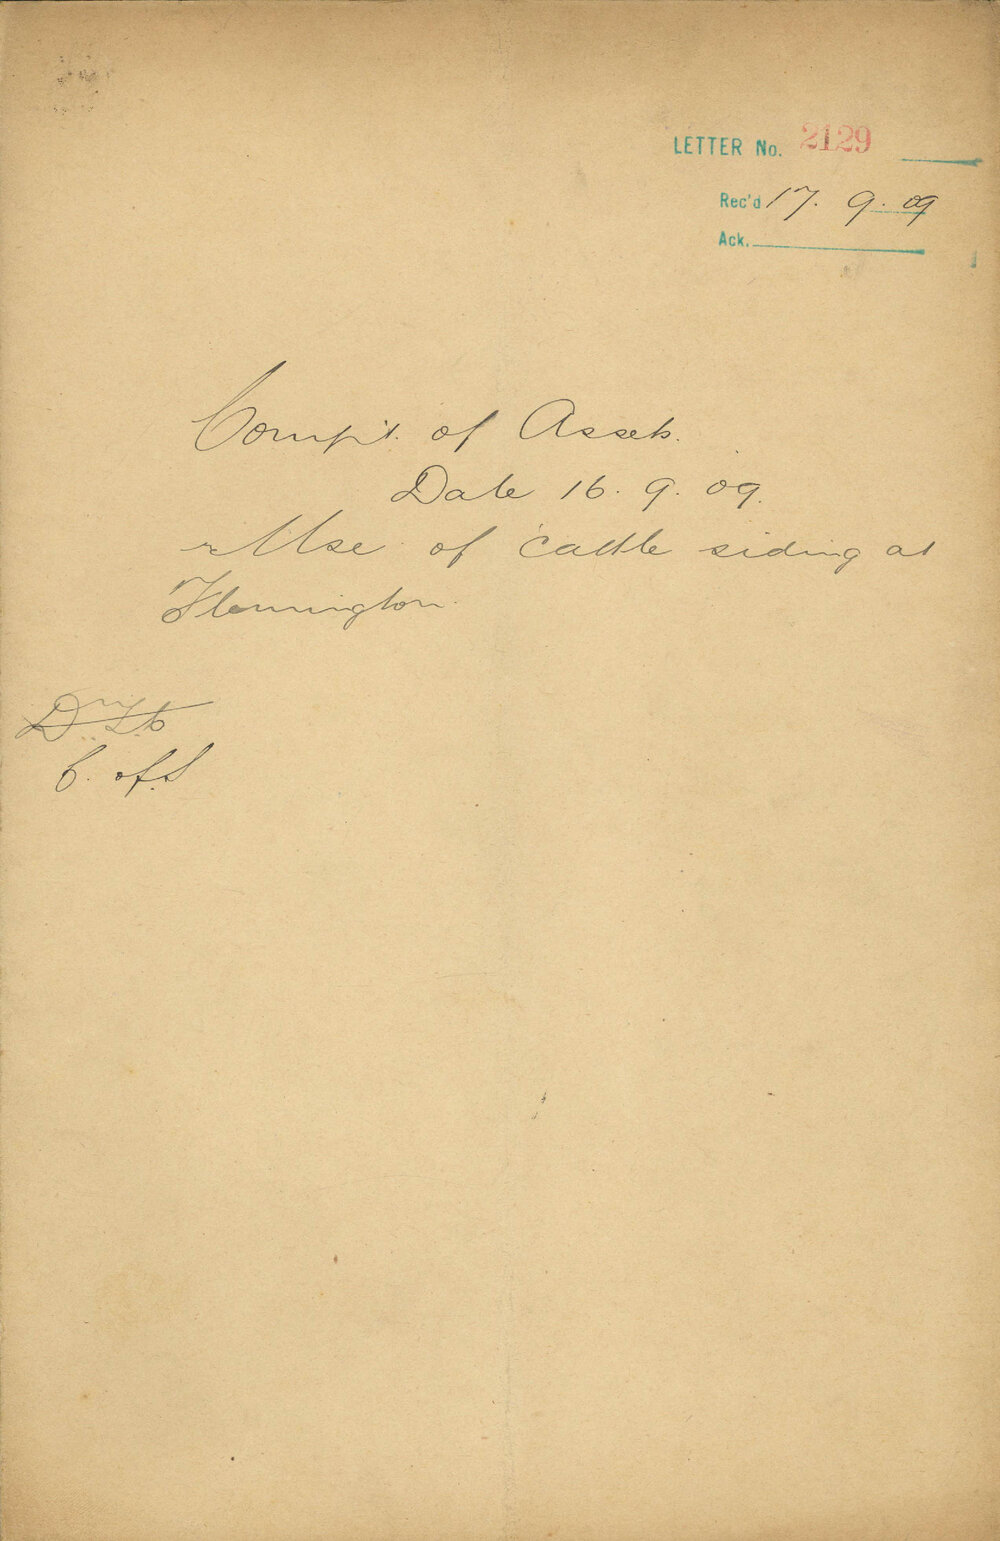 LETTER No. 2129
Rec'd 17. 9. 09
Ack.
Comp't. of Assets.
Date 16. 9. 09.
r Use of cattle siding at
Flemington.
C. of S